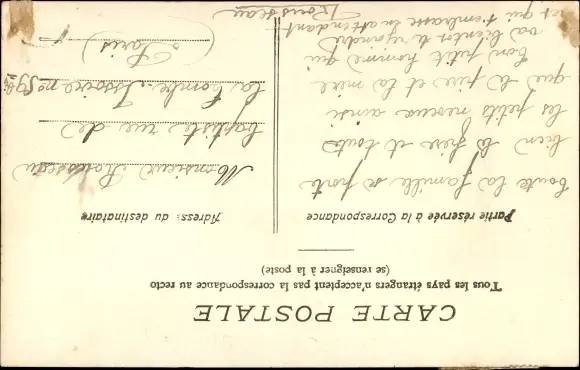 CARTE POSTALE
Tous les pays étrangers n'acceptent pas la correspondance au recto
(se renseigner à la poste)
Partie réservée à la Correspondance
toute la famille se port
bien le père et touts
les petits neveux ainsi
que le père et la mère
bon petit homme qui
va bientot te rejoindre
et qui t'embrasse en attendant
Rousseau
Adresse du destinataire
Monsieur Rousseau
baptiste rue de
la tombe-Issoire no 59
(Paris)